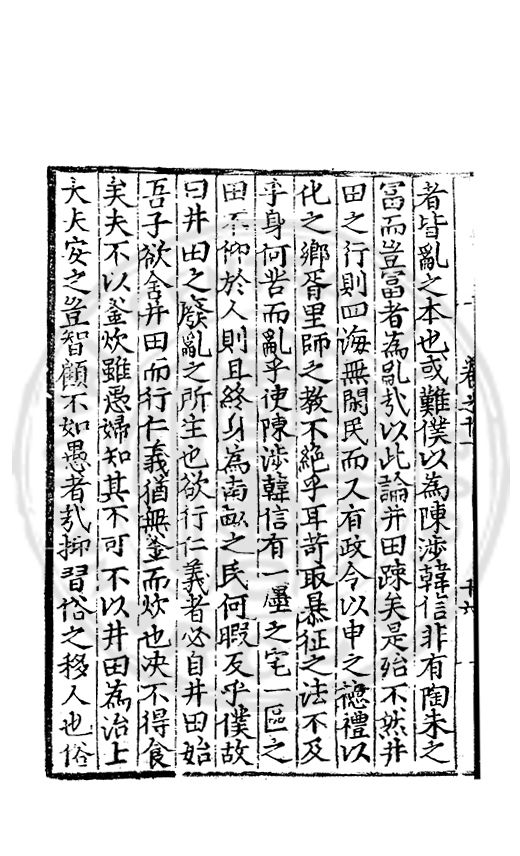 者皆亂之本也或難僕以為陳涉韓信非有陶朱之
富而豈富者為亂㢤以此論井田疎矣是殆不然井
田之行則四海無閒民而又有政令以申之德禮以
化之鄉胥里師之教不絶乎耳苛取暴征之法不及
乎身何苦而亂乎使陳涉韓信有一廛之宅一區之
田不仰於人則且終身為南畝之民何暇反乎僕故
曰井田之廢亂之所生也欲行仁義者必自井田始
吾子欲舍井田而行仁義猶無釜而炊也决不得食
矣夫不以釜炊雖愚婦知其不可不以井田為治上
大夫安之豈智顧不如愚者㢤抑習俗之移人也俗